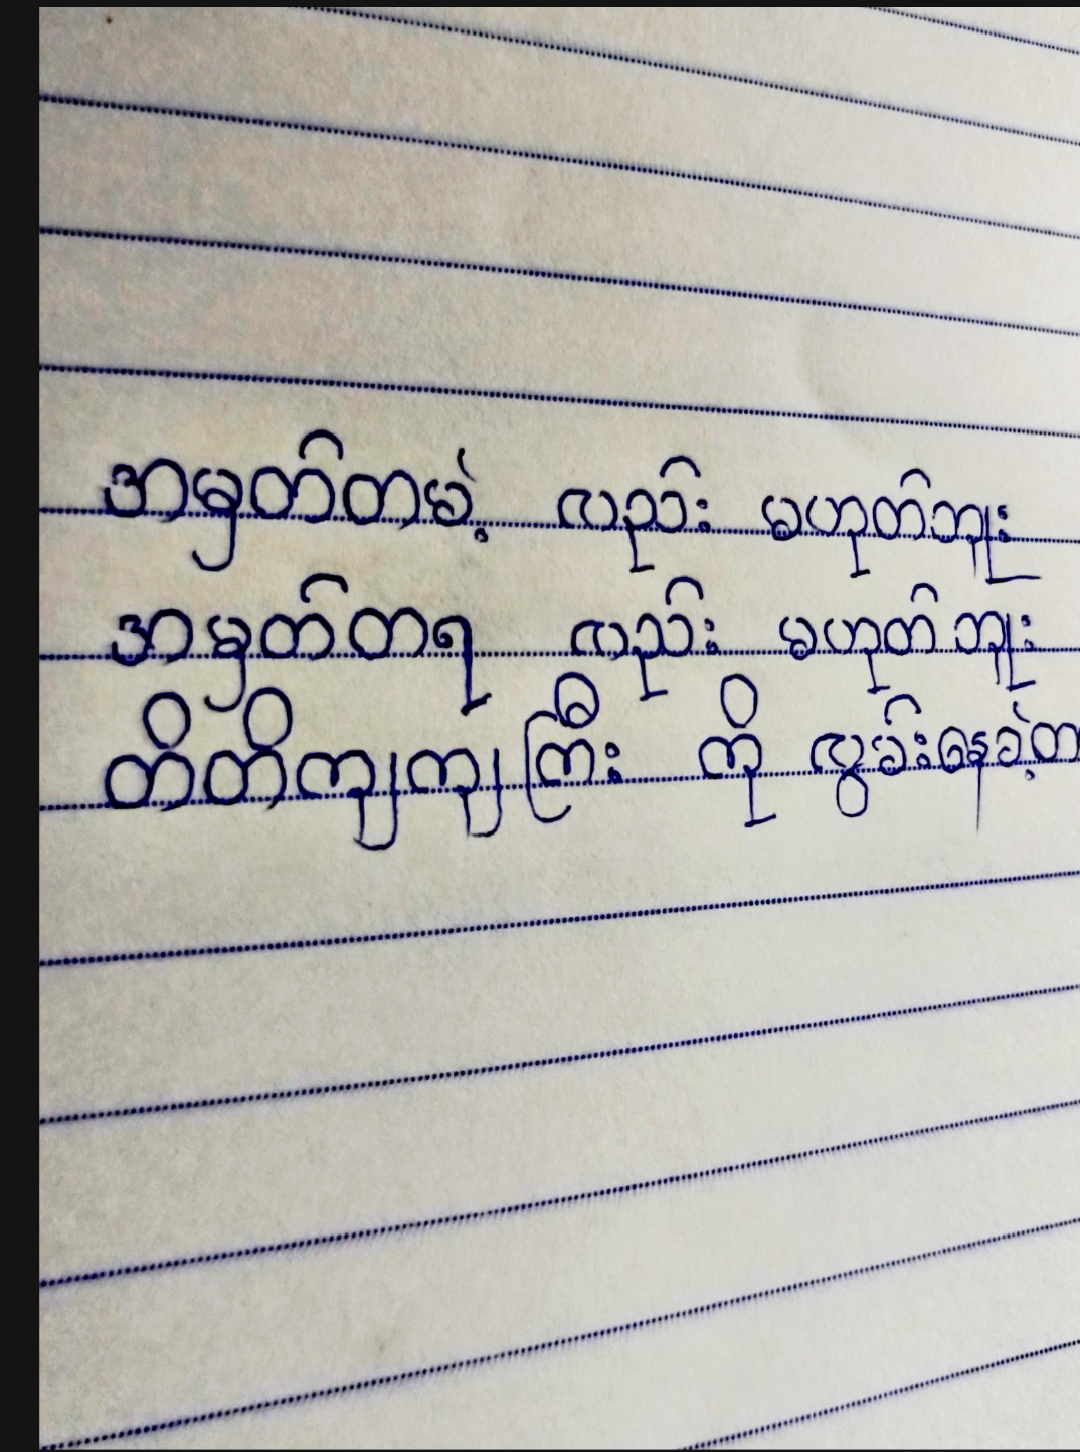 အမှတ်တမဲ့ လည်း မဟုတ်ဘူး
အမှတ်တရ လည်း မဟုတ်ဘူး
တိတိကျကျကြီး ကို လွမ်းနေခဲ့တ